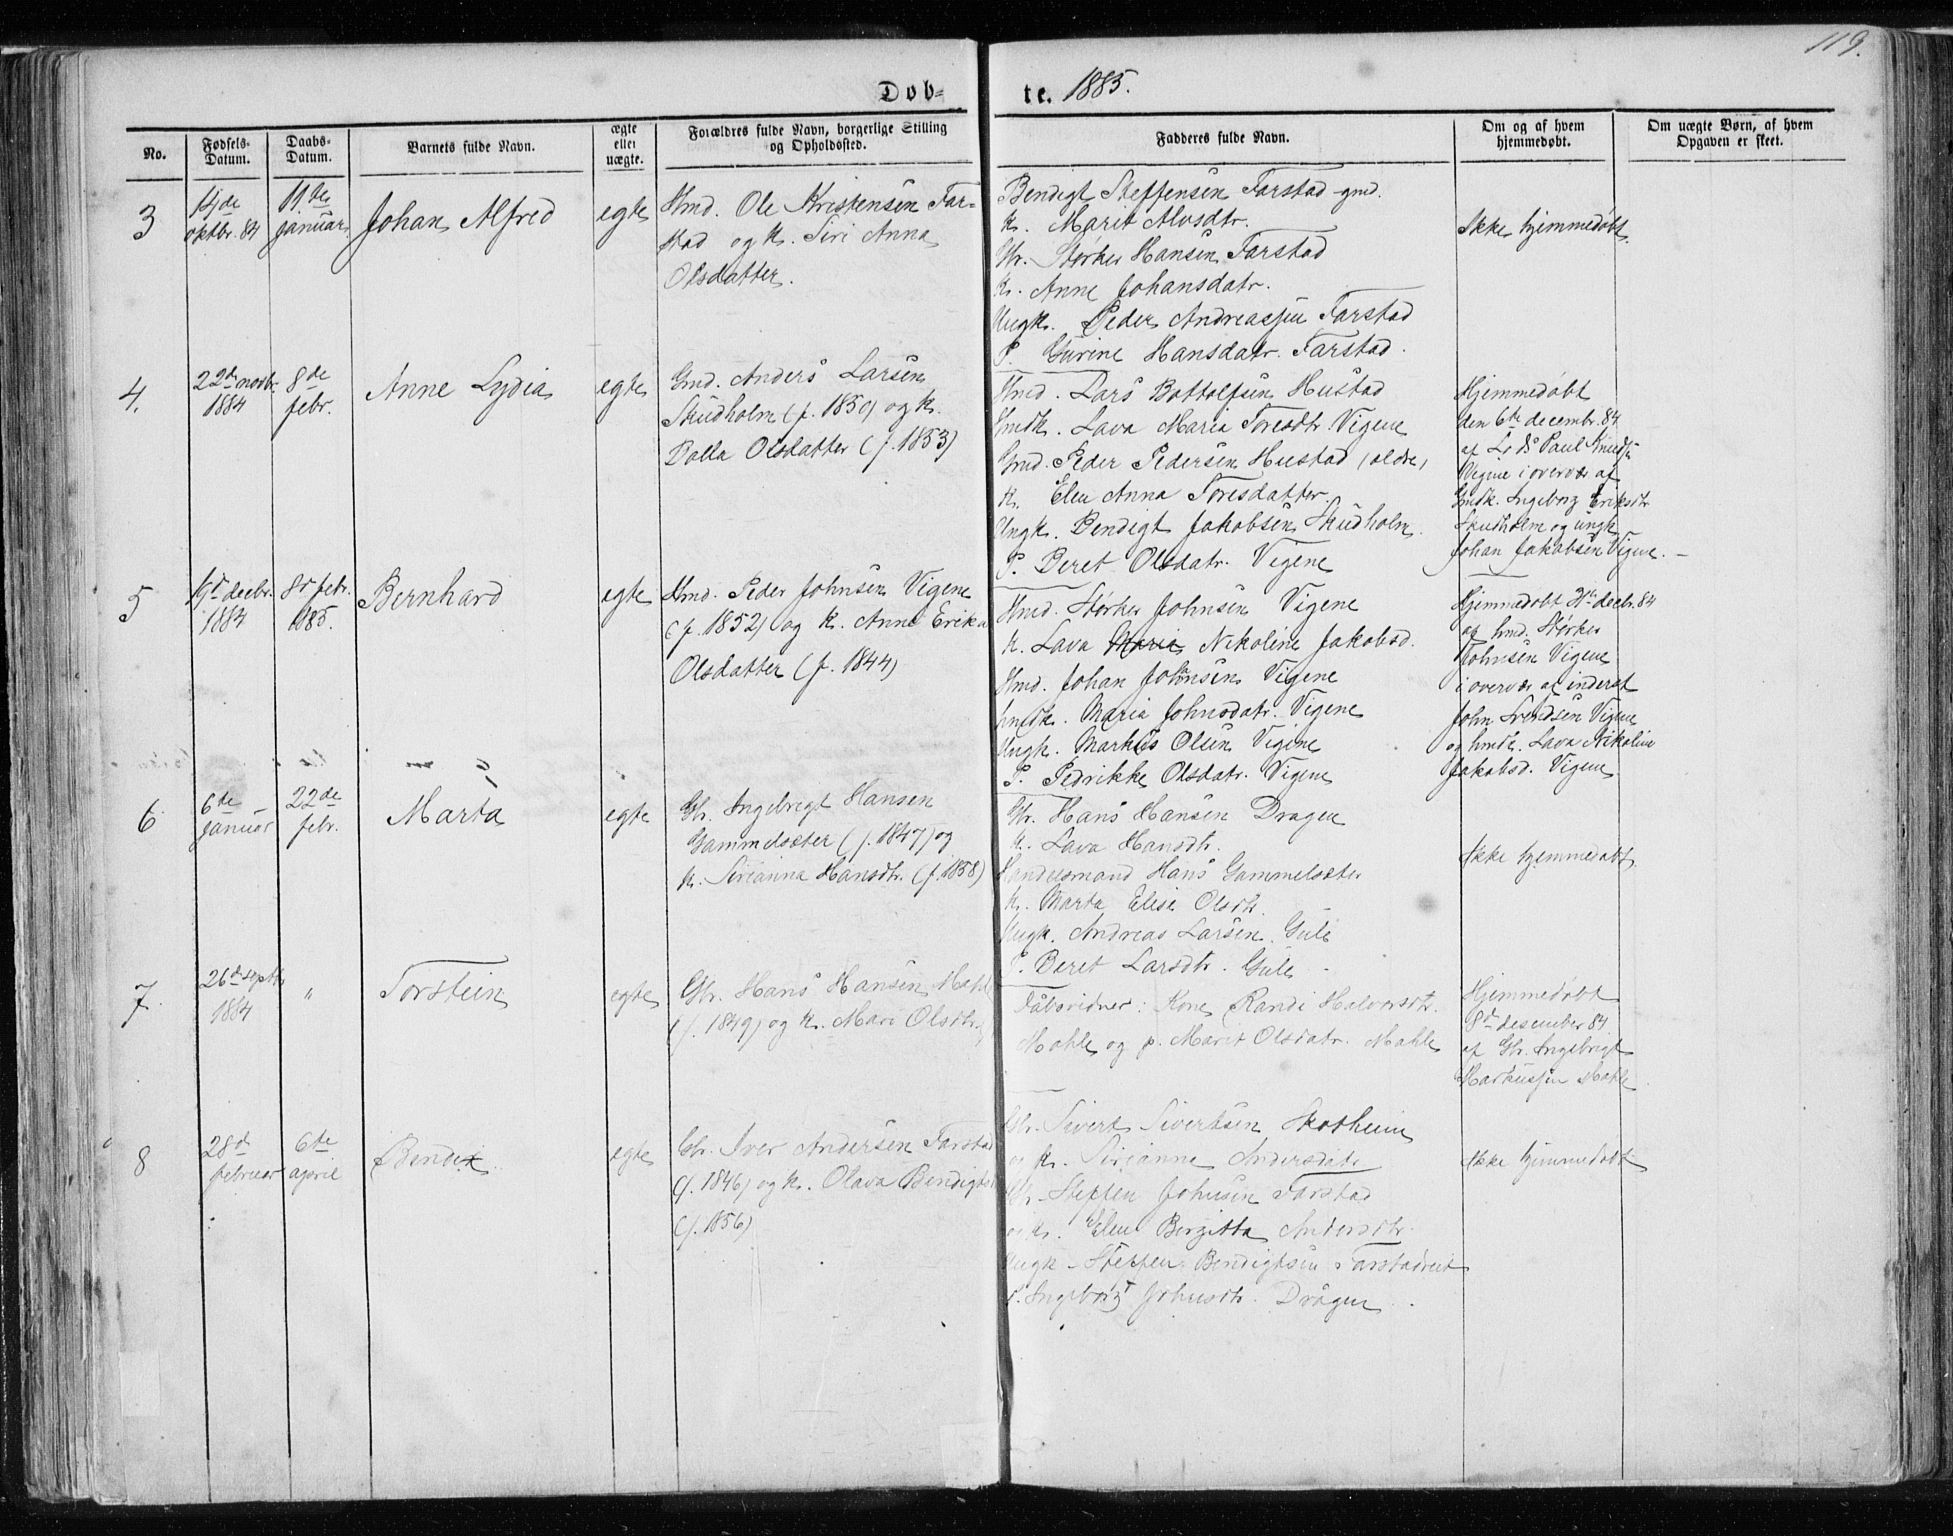 119.
Døb-
te. 1885.
No.
Fødsels-
Datum.
Daabs-
Datum.
Barnets fulde Navn.
ægte
eller
uægte.
Forældres fulde Navn, borgerlige Stilling
og Opholdssted.
Fadderes fulde Navn.
Om og af hvem
hjemmedøbt.
Om uægte Børn, af hvem
Opgaven er skeet.
3
oktbr. 84
11te
januar
Johan Alfred
egte
Hmd. Ole Kristensen Far-
stad og k. Siri Anna
Olsdatter.
Bendigt Steffensen Farstad gmd.
k. Marit Alvsdtr.
Gbr. Størker Hansen Farstad
k. Anne Johansdatr.
Ungk. Peder Andreassen Farstad
P. Gurine Hansdatr. Farstad.
Ikke hjemmedøbt.
4.
22de novbr.
1884
8de
febr.
Anne Lydia
egte
Gmd. Anders Larsen
Skudholm (f. 1850) og k.
Dalla Olsdatter (f. 1853)
Hmd. Lars Bottolfsen Hustad
Gmdk. Lava Maria Toresdtr. Vigene
Gmd. Peder Pedersen Hustad (ældre)
k. Elen Anna Toresdatter.
Ungk. Bendigt Jakobsen Skudholm.
P. Beret Olsdatr. Vigene
Hjemmedøbt
den 6te decembr. 84
af Paul Knudsen
Vigene i overvær af
Gmdk. Ingeborg Eriksdtr.
Skudholm og ungk.
Johan Jakobsen Vigene. –
5
decbr.
1884
8de febr.
1885.
Bernhard
egte
Hmd. Peder Johnsen Vigene
(f. 1852) og k. Anne Erika
Olsdatter (f. 1844)
Hmd. Størker Johnsen Vigene
k. Lava Maria Nikoline Jakobsd.
Hmd. Johan Johnsen Vigene
hmdk. Maria Johnsdatr. Vigene
Ungk. Markus Olsen Vigene
P. Pedrikke Olsdatr. Vigene
Hjemmedøbt decbr. 84
af hmd. Størker
Johnsen Vigene
i overvær af inderst
John Svendsen Vigene
og hmdk. Lava Nikoline
Jakobsd. Vigene
6
6te
januar
22de
febr.
Marta
egte
Gbr. Ingebrigt Hansen
Gammelsæter (f. 1847) og
k. Sirianna Hansdtr. (f. 1858)
Gbr. Hans Hansen Dragen
k. Lava Hansdtr.
Handelsmand Hans Gammelsæter
k. Marta Elise Olsdtr.
Ungk. Andreas Larsen Gule
P. Beret Larsdtr. Gule
Ikke hjemmedøbt.
7.
26de septbr.
1884
"
Torstein
egte
Gbr. Hans Hansen Mahle
(f. 1849) og k. Mari Olsdtr.
Dåbsvidner: Kone Randi Halvorsdtr.
Mahle og p. Marit Olsdatr. Mahle
Hjemmedøbt
8de desember 84
af Gbr. Ingebrigt
Markussen Mahle
8
28de
februar
6te
april
Bendix
egte
Gbr. Iver Andersen Farstad
(f. 1846) og k. Olava Bendigtsd.
(f. 1856)
Gbr. Sivert Sivertsen Skotheim
og k. Sirianne Andersdatr.
Gbr. Steffen Johnsen Farstad
og k. Elen Birgitta Andersdtr.
Ungk. Steffen Bendigtsen Farstadreit
P. Ingeborg Johnsdtr. Drågen
Ikke hjemmedøbt